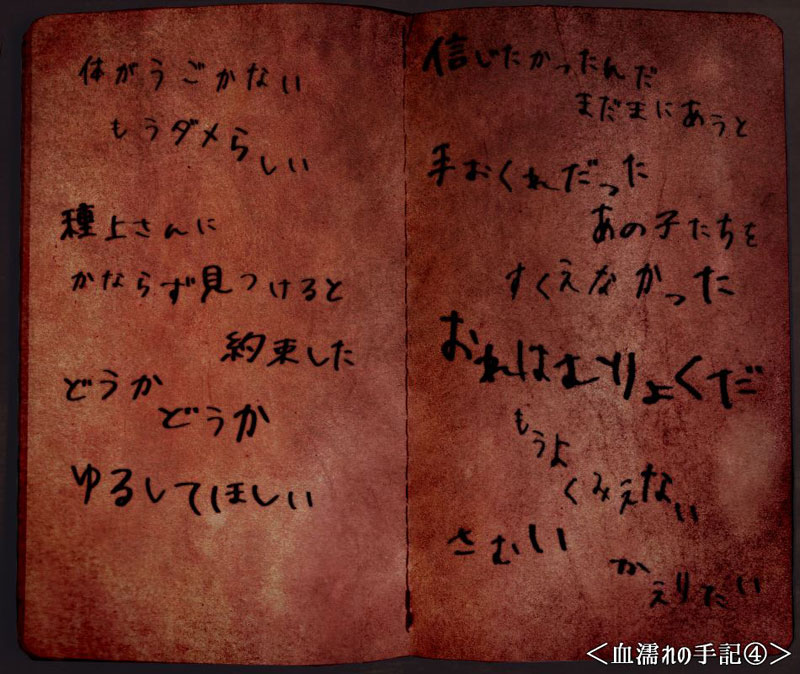 体がうごかない
もうダメらしい
種上さんに
かならず見つけると
約束した
どうか
どうか
ゆるしてほしい
信じたかったんだ
まだまにあうと
手おくれだった
あの子たちを
すくえなかった
おれはむりょくだ
もうよ
くみえない
さむい
かえりたい
＜血濡れの手記④＞